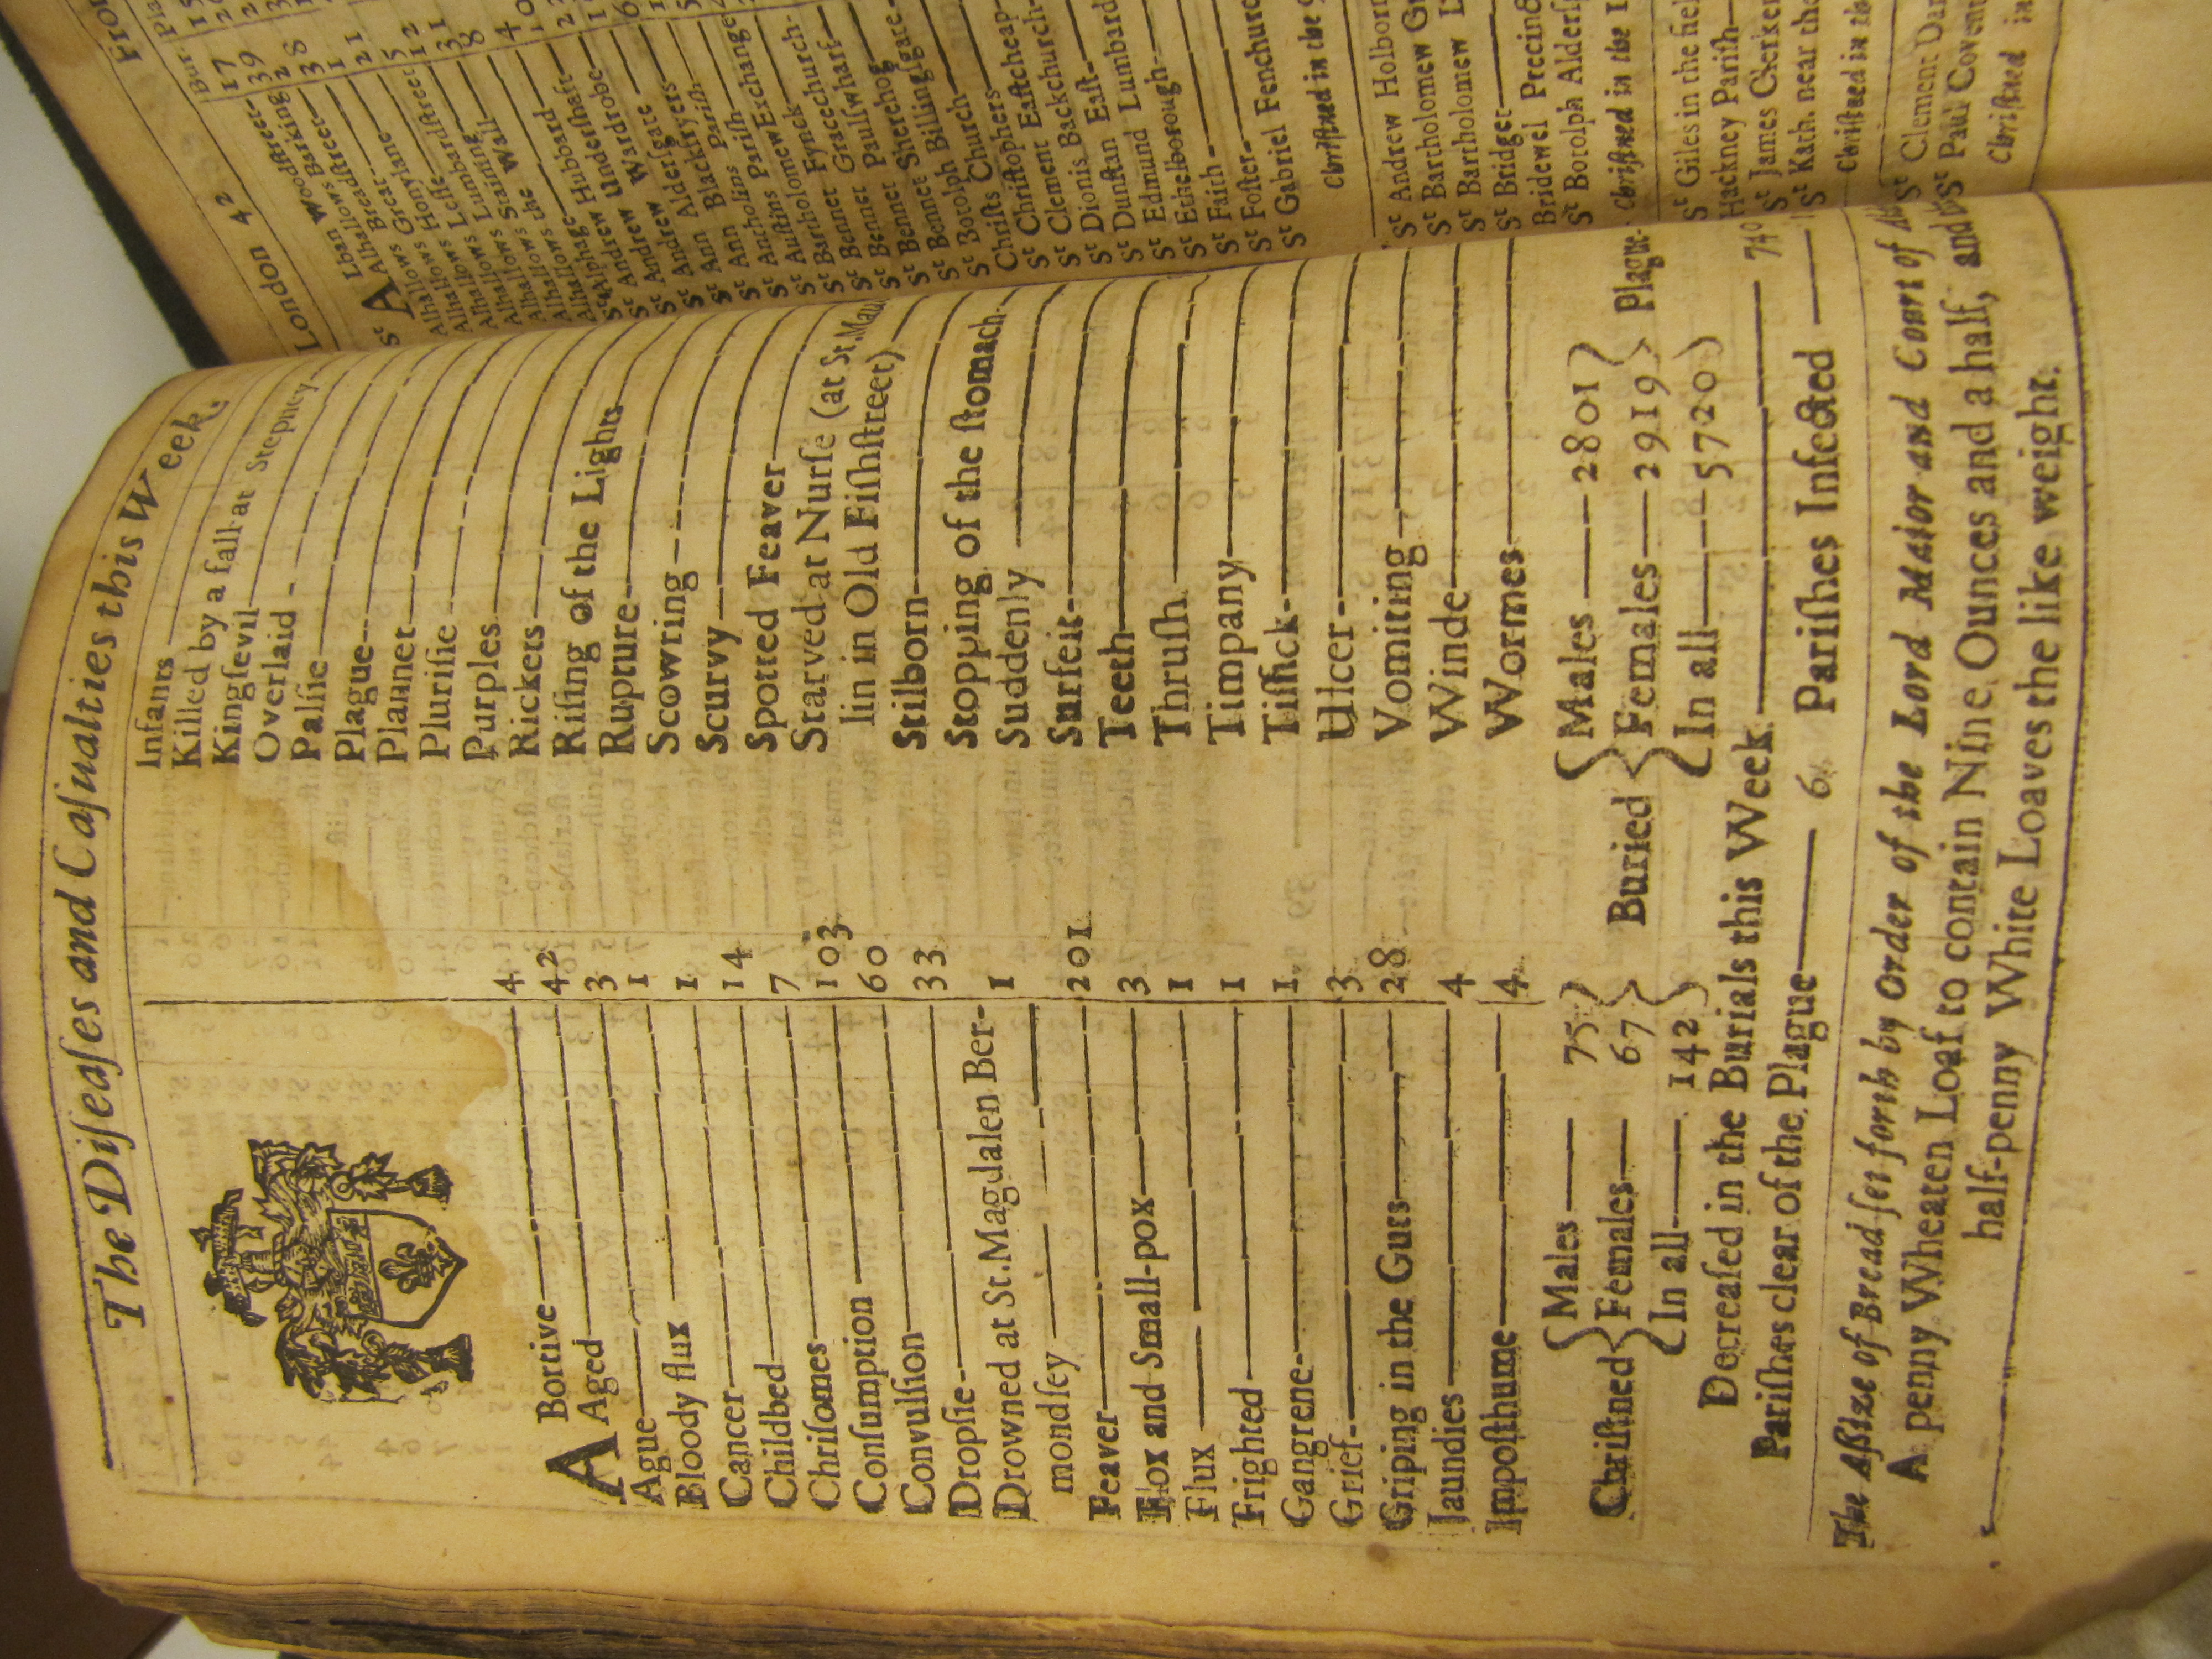 The Diſeaſes and Caſualties this Week.
ABortive 4
Aged 42
Ague 3
Bloody flux 1
Cancer 1
Childbed 14
Chriſomes 7
Conſumption 103
Convulſion 60
Dropſie 33
Drowned at St. Magdalen Ber-
mondſey 1
Feaver 201
Flox and Small-pox 3
Flux 1
Frighted 1
Gangrene 1
Grief 3
Griping in the Guts 28
Jaundies 4
Impoſthume 4
Infants
Killed by a fall at Stepney
Kingſevil
Overlaid
Palſie
Plague
Plannet
Pluriſie
Purples
Rickets
Riſing of the Lights
Rupture
Scowring
Scurvy
Spotted Feaver
Starved at Nurſe (at St. Mau
lin in Old Fiſhſtreet)
Stilborn
Stopping of the ſtomach
Suddenly
Surfeit
Teeth
Thruſh
Timpany
Tiſſick
Ulcer
Vomiting
Winde
Wormes
Chriſtned Males 75 Females 67 In all 142
Buried Males 2801 Females 2919 In all 5720 Plague
Decreaſed in the Burials this Week 740
Pariſhes clear of the Plague 6 Pariſhes Infected
The Aſsize of Bread ſet forth by Order of the Lord Maior and Court of
A penny Wheaten Loaf to contain Nine Ounces and a half, and
half-penny White Loaves the like weight.
London 42
Bur. Pla
St ALban Woodſtreet 17
Alhallows Barking 39
Alhallows Breadſtreet 2
Alhallows Great 38
Alhallows Honylane 1
Alhallows Leſſe 21
Alhallows Lumbardſtreet 5
Alhallows Staining 12
Alhallows the Wall 31
Alphage 8
St Andrew Hubbard 4
St Andrew Underſhaft
St Andrew Wardrobe
St Ann Alderſgate
St Ann Blackfryers
St Antholins Pariſh
St Auſtins Pariſh
St Bartholomew Exchange
St Bennet Fynck
St Bennet Gracechurch
St Bennet Paulſwharf
St Bennet Sherehog
St Botolph Billingſgate
Chriſts Church
St Chriſtophers
St Clement Eaſtcheap
St Dionis Backchurch
St Dunſtan Eaſt
St Edmund Lumbard
St Ethelborough
St Faith
St Foſter
St Gabriel Fenchurc
Chriſtned in the 9
St Andrew Holborn
St Bartholomew Gr
St Bartholomew L
St Bridget
Bridewel Precinct
St Botolph Alderſ
Chriſtned in the 1
St Giles in the fiel
Hackney Pariſh
St James Clerken
St Kath. near the
Chriſtned in th
St Clement Dan
St Paul Covent
Chriſtned in